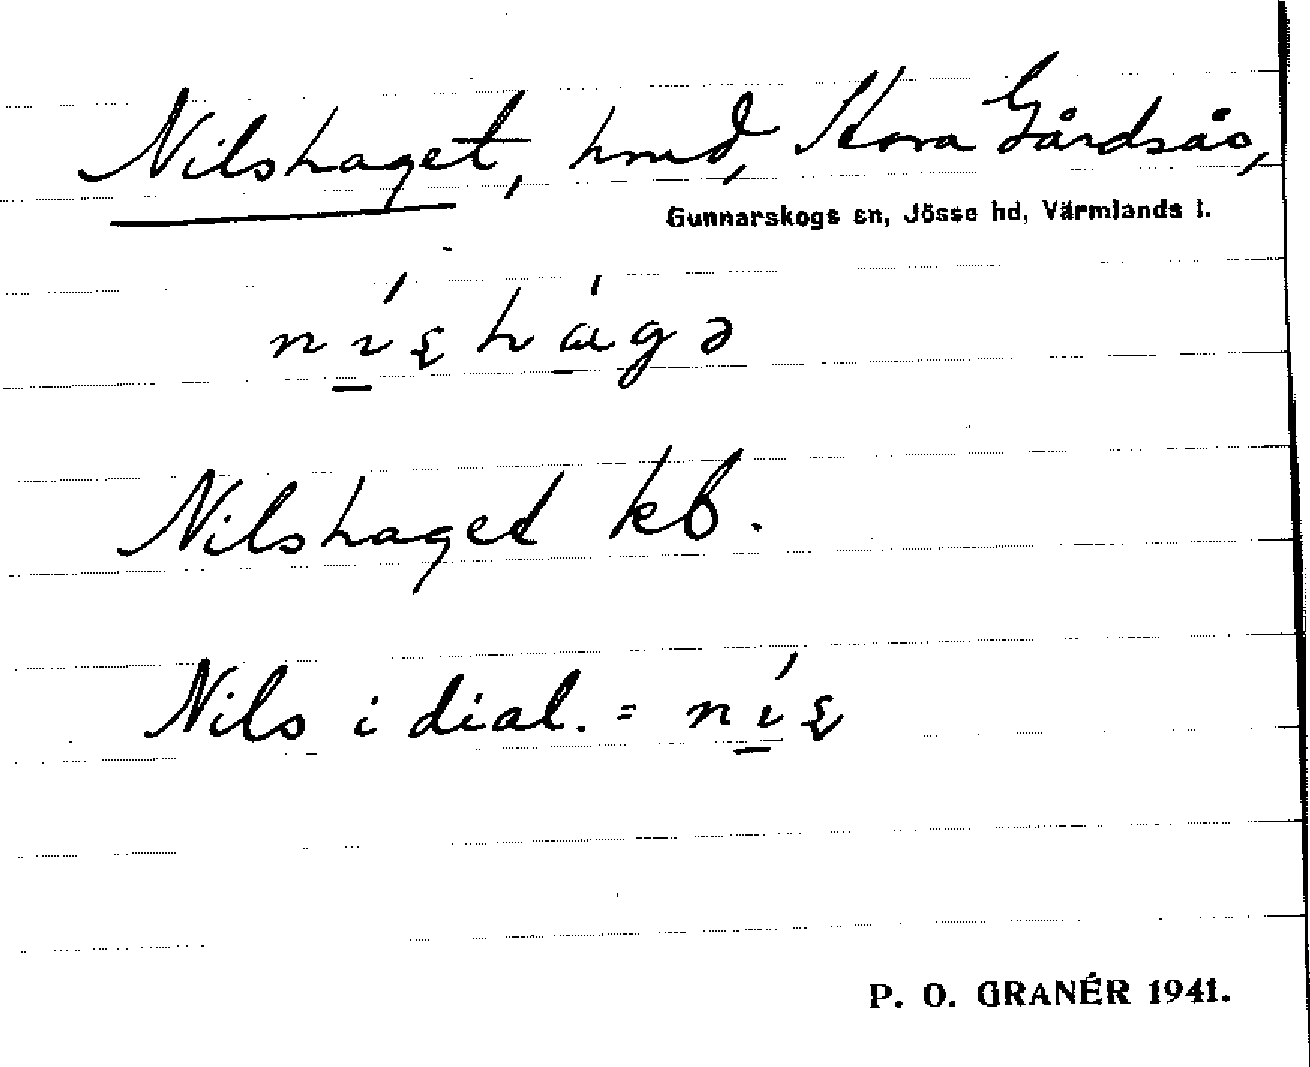 Nilshaget, hmd, Stora Gårdsås,
Gunnarskogs sn, Jösse hd, Värmlands l.
Nilshaged kb.
Nils i dial. =
P. O. GRANÉR 1941.